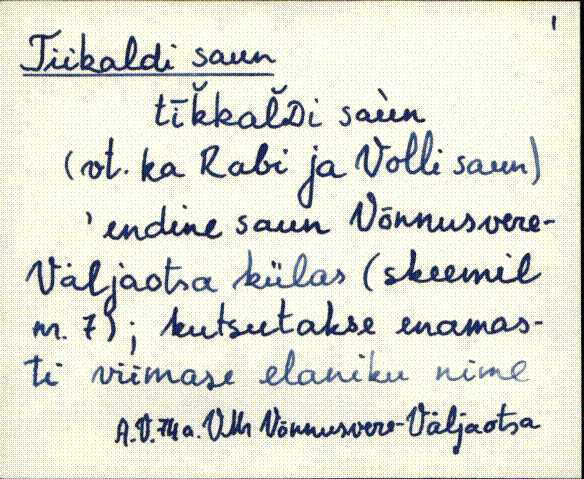 1
Tiikaldi saun
tīk̆kal̆Di saùn
(vt. ka Rabi ja Volli saun)
'endine saun Võnnusvere-
Väljaotsa külas (skeemil
nr. 7); kutsutakse enamas-
ti viimase elaniku nime
A.V. 74 a. VMr Võnnusvere-Väljaotsa